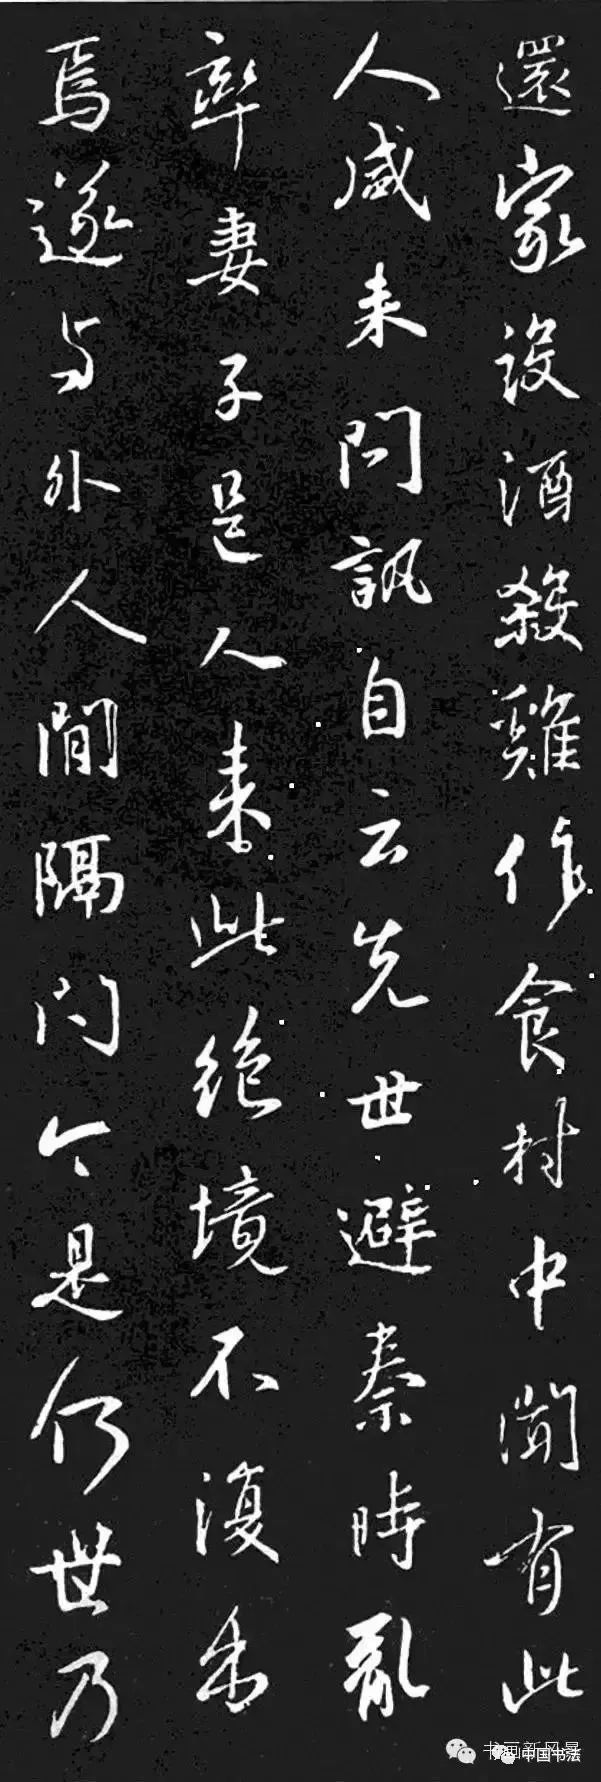 還家設酒殺雞作食村中聞有此
人咸来問訊自云先世避秦時亂
率妻子邑人来此絶境不復出
焉遂与外人間隔問今是何世乃
书画新风景
中国书法